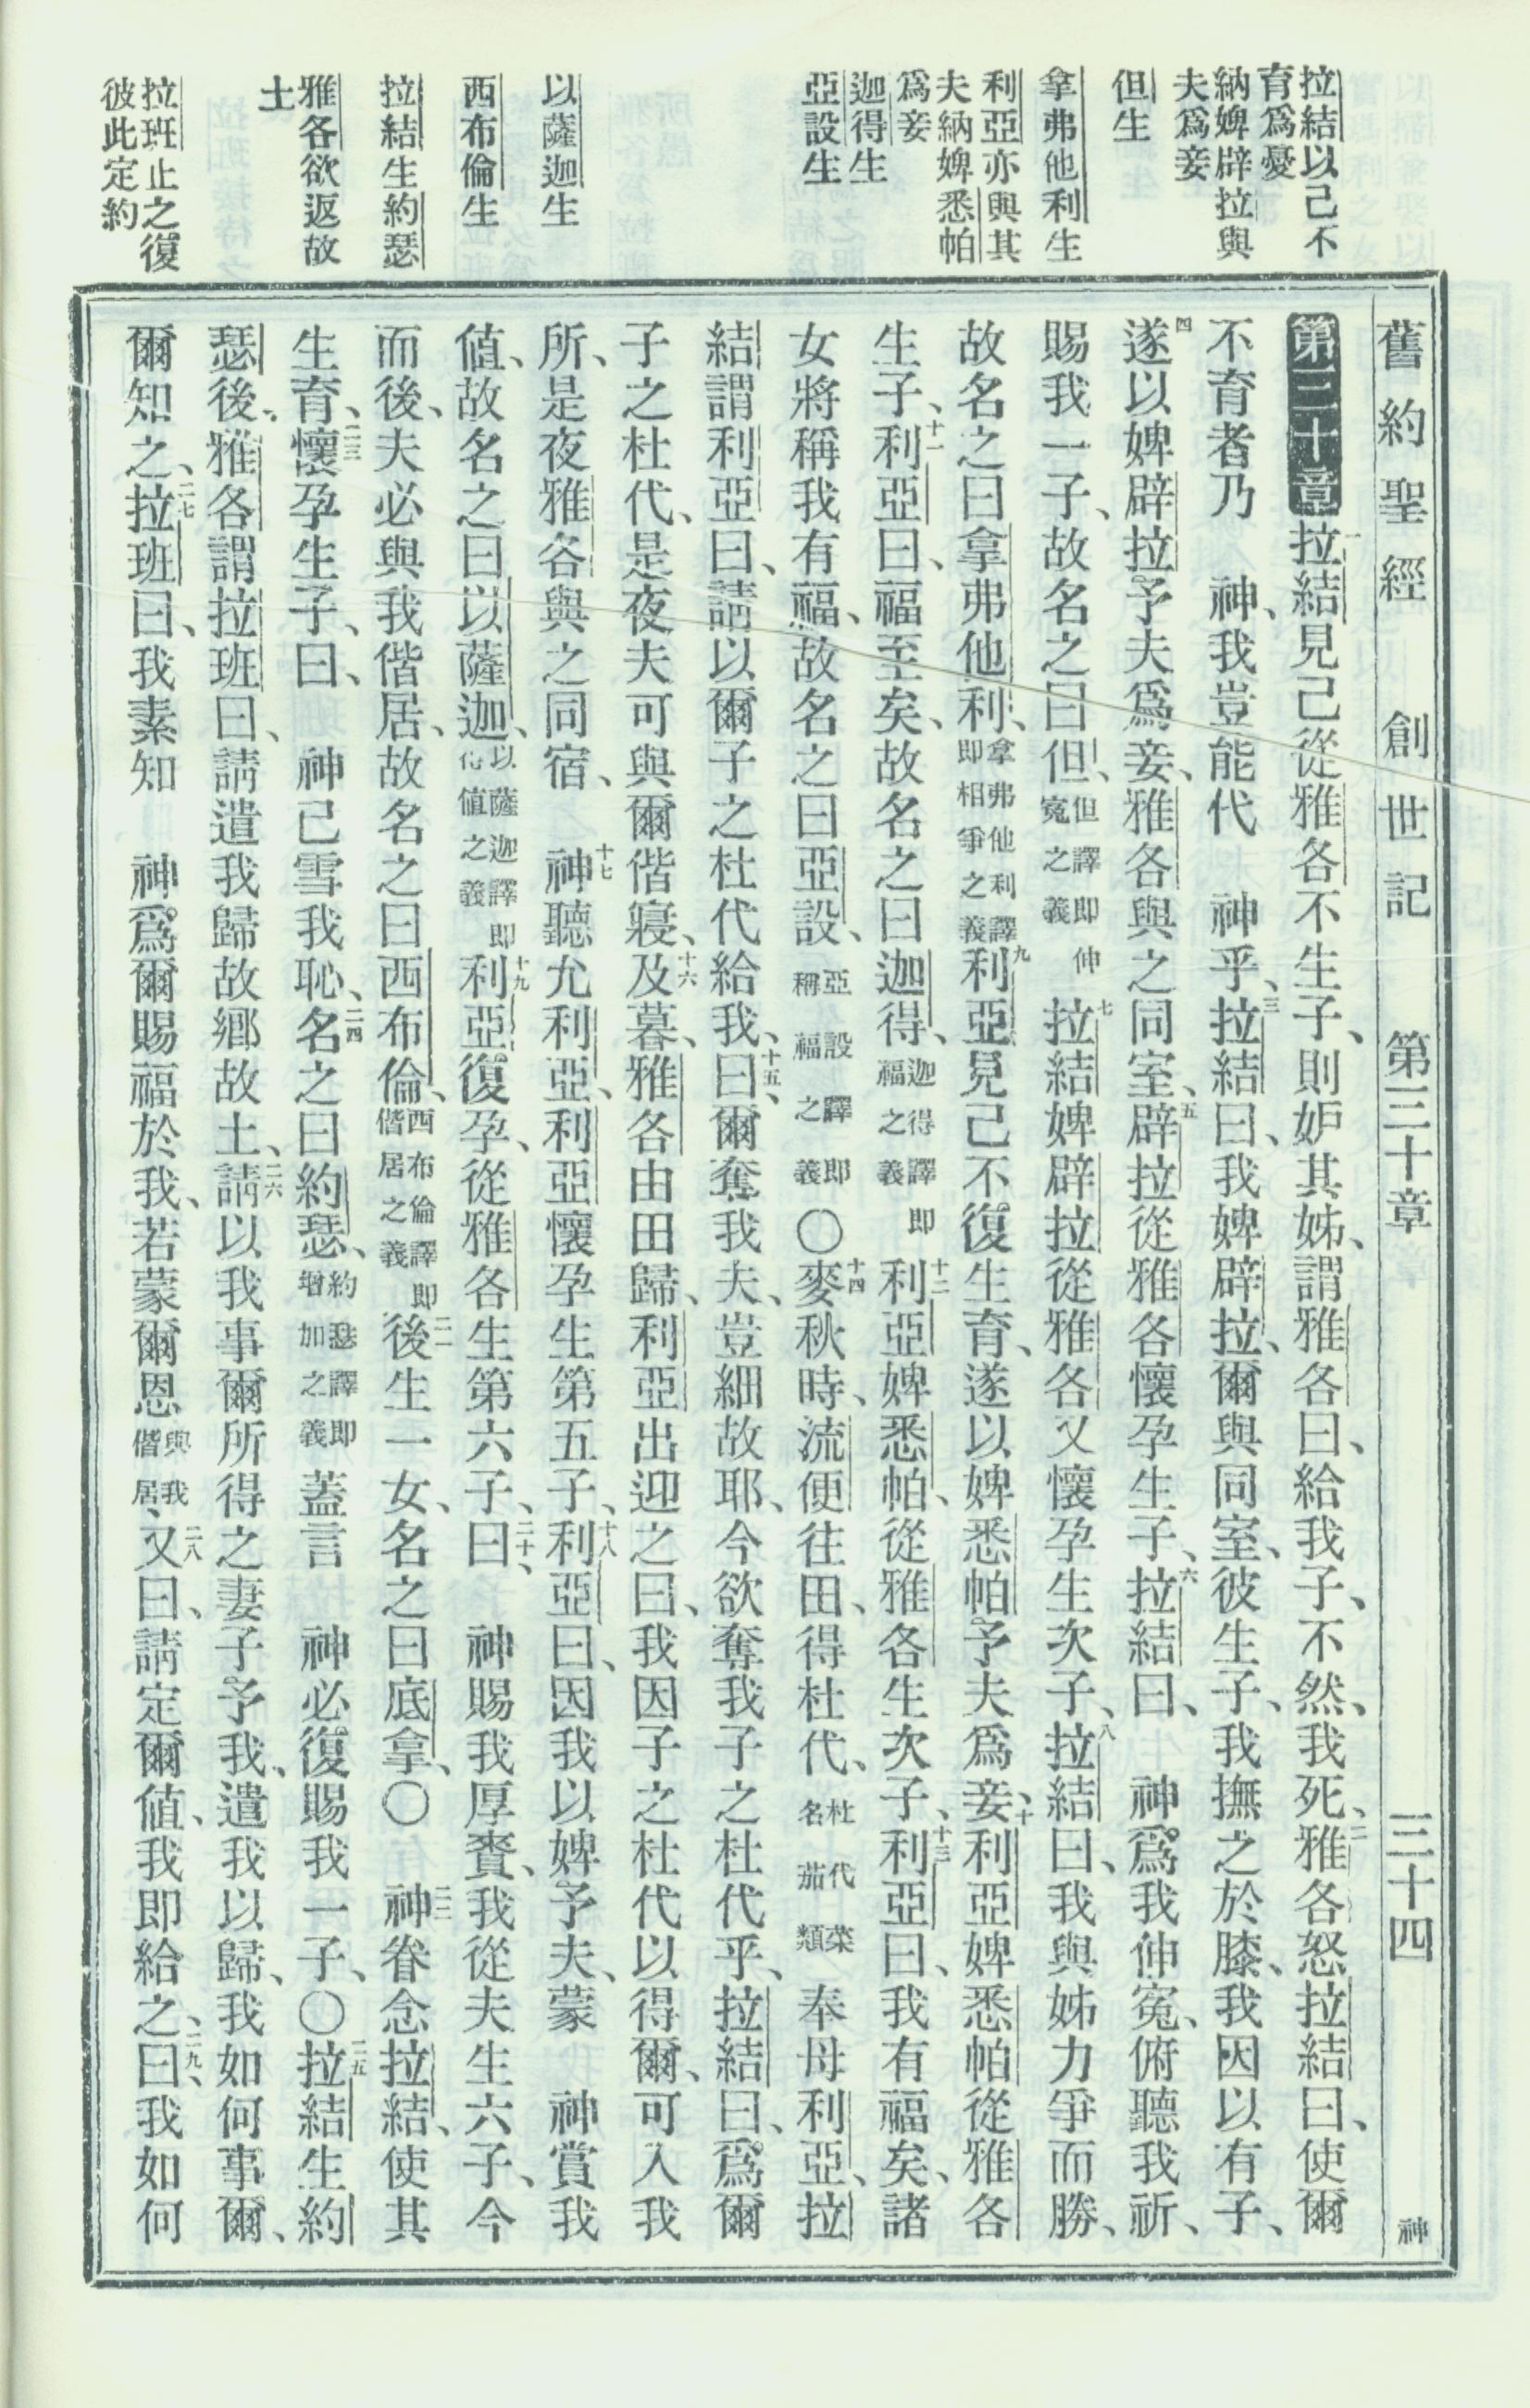 舊約聖經 創世記 第三十章 三十四 神
拉結以己不
育爲憂
納婢辟拉與
夫爲妾
但生
拿弗他利生
利亞亦與其
夫納婢悉帕
爲妾
迦得生
亞設生
以薩迦生
西布倫生
拉結生約瑟
雅各欲返故
土
拉班止之復
彼此定約
第三十章一拉結見己從雅各不生子、則妒其姊、謂雅各曰、給我子、不然、我死、二雅各怒拉結曰、使爾
不育者乃 神、我豈能代 神乎、三拉結曰、我婢辟拉、爾與同室、彼生子、我撫之於膝、我因以有子、
四遂以婢辟拉予夫爲妾、雅各與之同室、五辟拉從雅各懷孕生子、六拉結曰、 神爲我伸寃、俯聽我祈、
賜我一子、故名之曰但、但譯即伸寃之義 七拉結婢辟拉從雅各又懷孕生次子、八拉結曰、我與姊力爭而勝、
故名之曰拿弗他利、拿弗他利譯即相爭之義 九利亞見己不復生育、遂以婢悉帕予夫爲妾、十利亞婢悉帕從雅各
生子、十一利亞曰、福至矣、故名之曰迦得、迦得譯即福之義 十二利亞婢悉帕、從雅各生次子、十三利亞曰、我有福矣、諸
女將稱我有福、故名之曰亞設、亞設譯即稱福之義 〇十四麥秋時、流便往田、得杜代、杜代菜名茄類 奉母利亞、拉
結謂利亞曰、請以爾子之杜代給我、十五曰、爾奪我夫、豈細故耶、今欲奪我子之杜代乎、拉結曰、爲爾
子之杜代、是夜夫可與爾偕寢、十六及暮、雅各由田歸、利亞出迎之曰、我因子之杜代以得爾、可入我
所、是夜雅各與之同宿、 十七神聽允利亞、利亞懷孕生第五子、十八利亞曰、因我以婢予夫、蒙 神賞我
値、故名之曰以薩迦、以薩迦譯即得値之義 十九利亞復孕、從雅各生第六子、二十曰、 神賜我厚賚、我從夫生六子、今
而後、夫必與我偕居、故名之曰西布倫、西布倫譯即偕居之義 二一後生一女、名之曰底拿、〇 二二神眷念拉結、使其
生育、二三懷孕生子、曰、 神已雪我恥、二四名之曰約瑟、約瑟譯即增加之義 蓋言 神必復賜我一子、〇二五拉結生約
瑟後、雅各謂拉班曰、請遣我歸故鄉故土、二六請以我事爾所得之妻子予我、遣我以歸、我如何事爾、
爾知之、二七拉班曰、我素知 神爲爾賜福於我、若蒙爾恩與我偕居、二八又曰、請定爾値、我即給之、二九曰、我如何